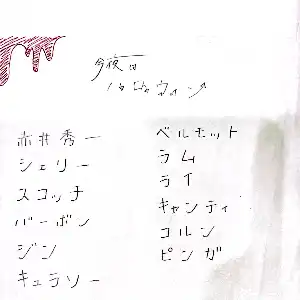 今夜は
ハロウィーン
赤井秀一
シェリー
スコッチ
バーボン
ジン
キュラソー
ベルモット
ラム
ライ
キャンティ
コルン
ピンガ